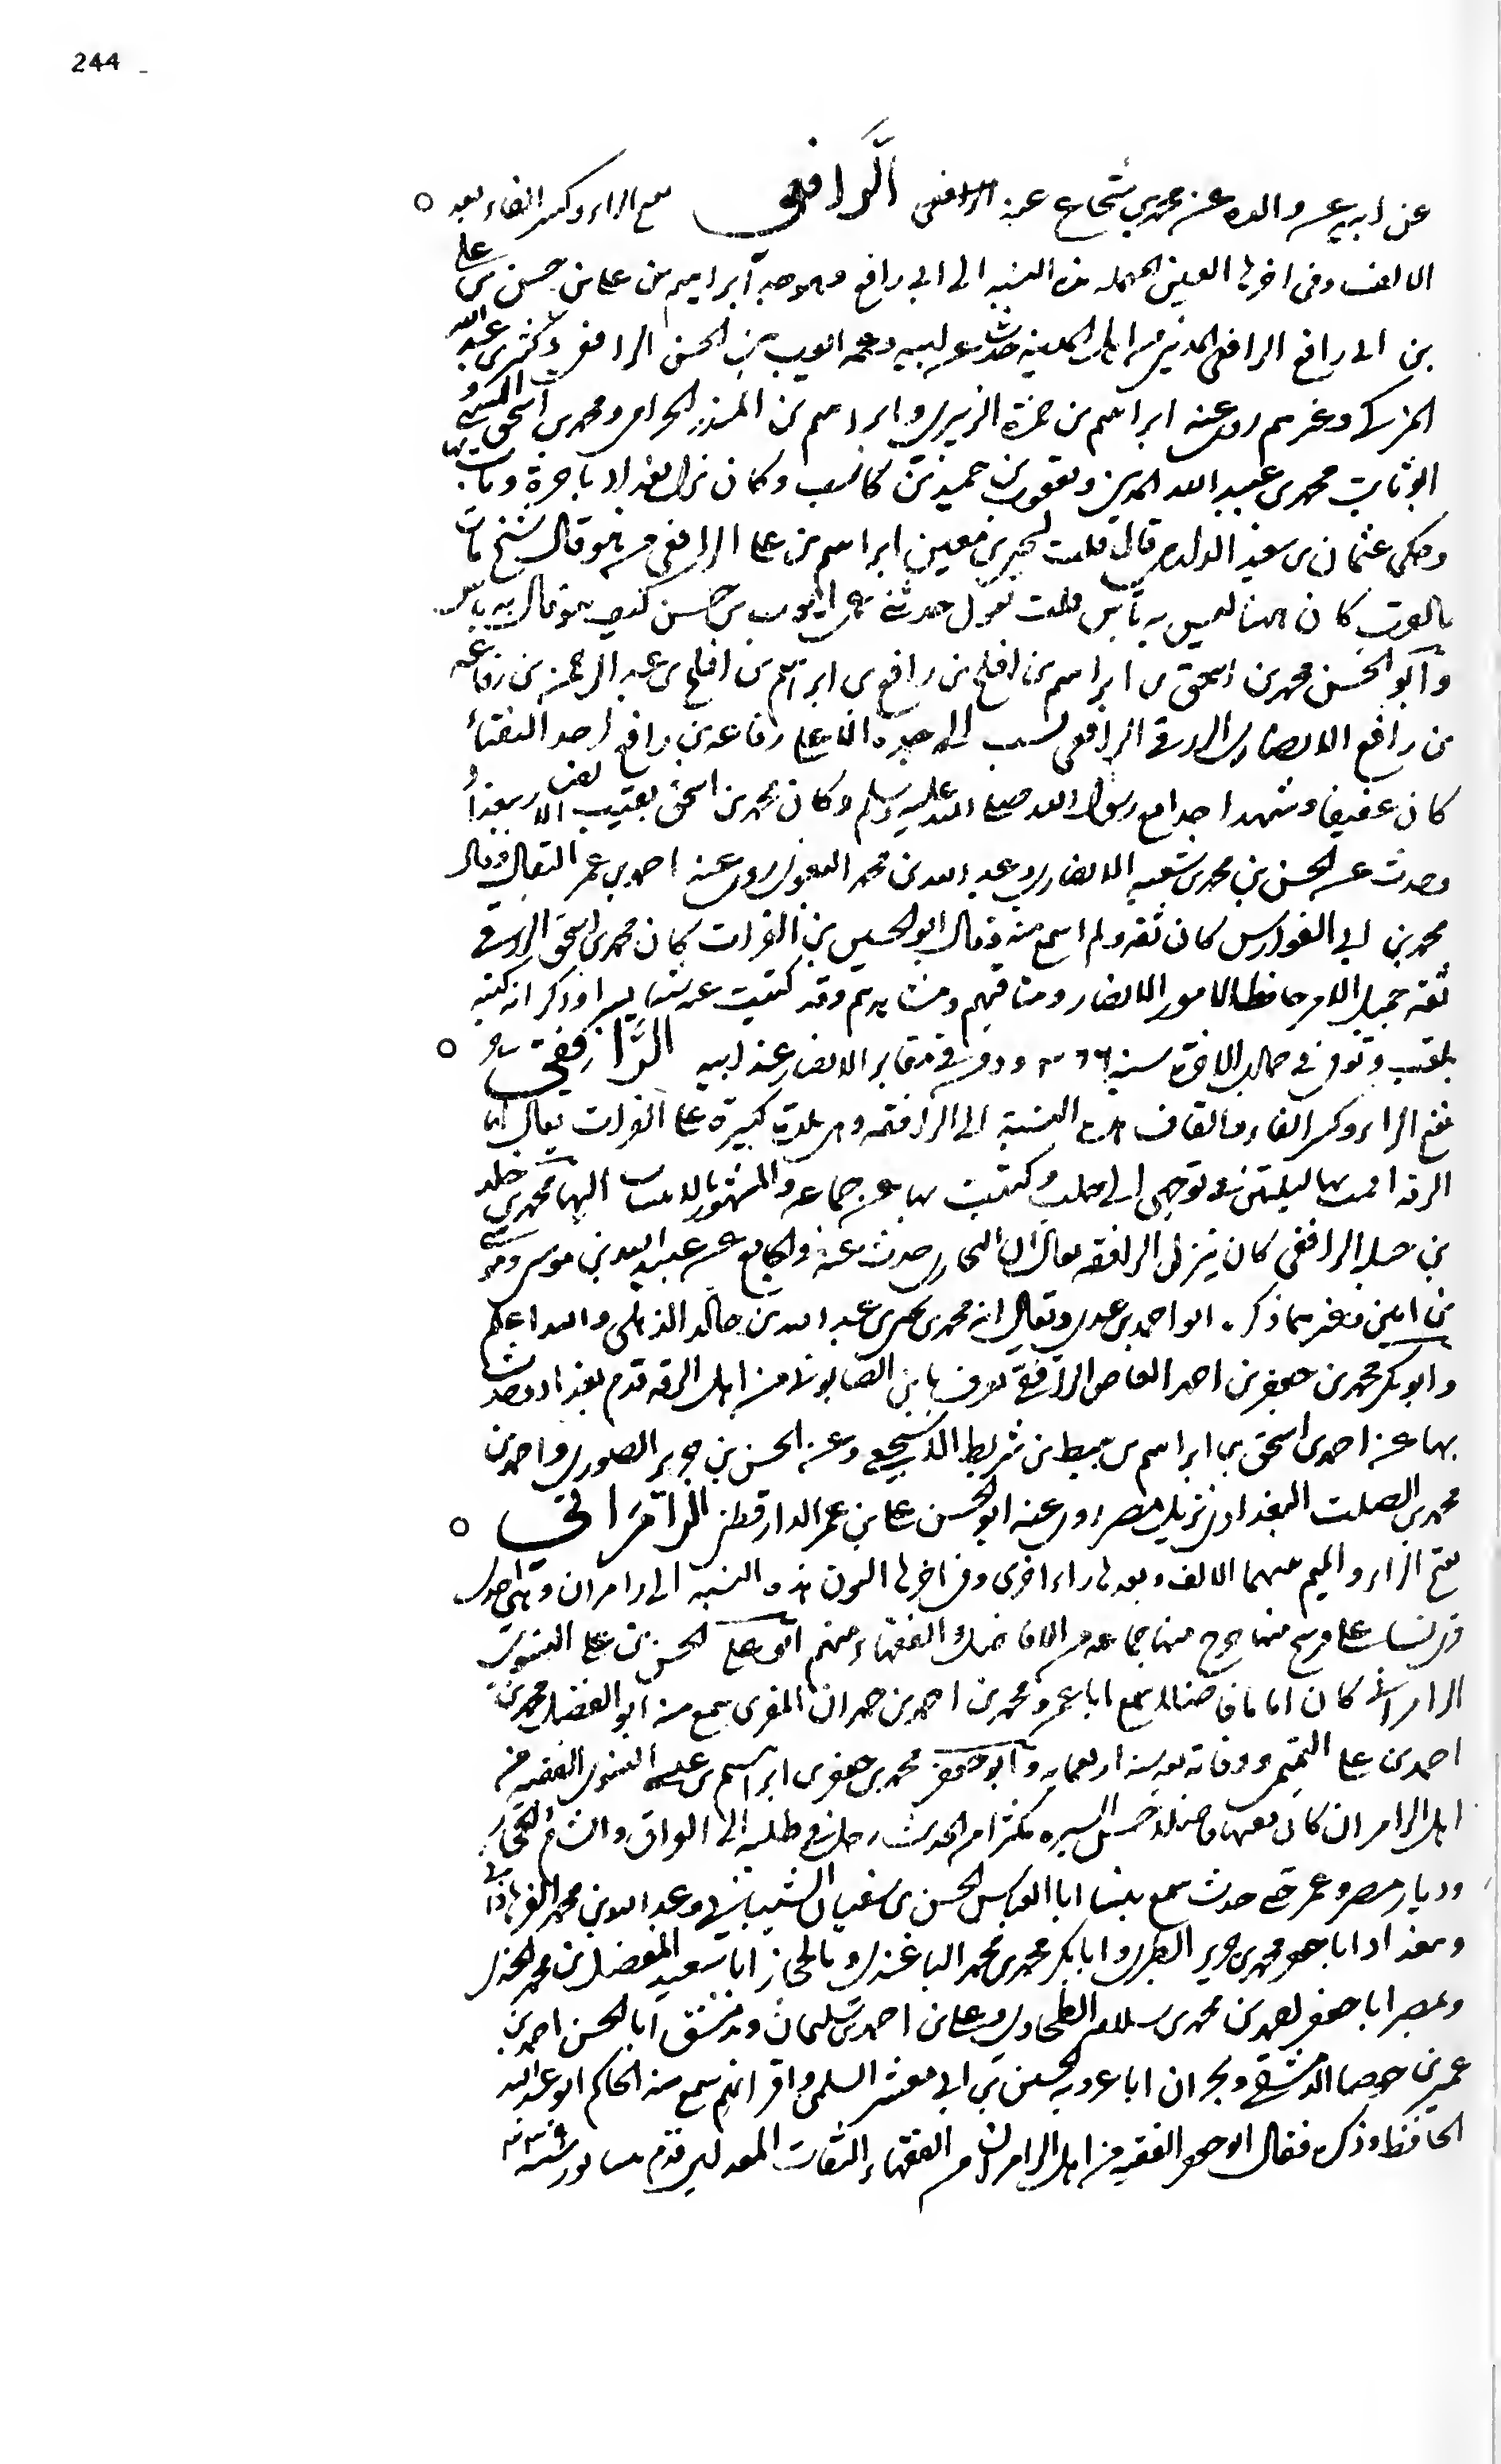 244
عن ابيه عن والده عن محمد بن شجاع عنه الرافعي الرَّافعي بفتح الراء وكسر الفاء بعد
الالف وفي اخرها العين المهملة هذه النسبة الى ابي رافع وهو جد ابراهيم بن علي بن حسن بن علي
بن ابي رافع الرافعي المدني من اهل المدينة حدث عن ابيه وعمه ايوب بن الحسن الرافعي وكثير بن عبد الله
المزني وغيرهم روى عنه ابراهيم بن حمزة الزبيري وابراهيم بن المنذر الحزامي ومحمد بن اسحق المسيبي و
ابو ثابت محمد بن عبيد الله المديني ويعقوب بن حميد بن كاسب وكان نزل بغداد باخرة ومات بها
وحكى عثمان بن سعيد الدارمي قال قلت ليحيى بن معين ابراهيم بن علي الرافعي من هو قال شيخ مات
بالقرب كان ههنا ليس به بأس قلت يقول حدثني عمي ايوب بن حسن كيف هو قال ليس به بأس
وابو الحسن محمد بن اسحق بن ابراهيم بن افلح بن رافع بن ابراهيم بن افلح بن عبد الرحمن بن رفاعة
بن رافع الانصاري الزرقي الرافعي نسب الى جده الاعلى رفاعة بن رافع احد النقباء
كان عقبيا وشهد احدا مع رسول الله صلى الله عليه وسلم وكان محمد بن اسحق نقيب الانصار ببغداد
وحدث عن الحسن بن محمد بن شعبة الانصاري وعبد الله بن محمد البغوي روى عنه احمد بن عمر البقال وقال
محمد بن ابي الفوارس كان ثقة ولم اسمع منه وقال ابو الحسين بن الفرات كان محمد بن اسحق الزرقي
ثقة جميل الامر حافظا لامور الانصار ومناقبهم ومشاهدهم وقد كتبت عنه شيئا يسيرا وذكر ان كتبه
تلفت وتوفي في جمادى الاخرة سنة ٣٦٦ ودفن في مقابر الانصار عند ابيه الرَّافِقي
بفتح الراء وكسر الفاء والقاف هذه النسبة الى الرافقة وهي بلدة كبيرة على الفرات يقال لها
الرقة اقمت بها ليلتين في توجهي الى حلب وكتبت بها عن جماعة والمشهور بالانتساب اليها محمد بن خلد
بن جبلة الرافقي كان ينزل الرافقة يقال ان البخاري حدث عنه في الجامع عن عبيد الله بن موسى ومحمد بن موسى
بن اعين فيما ذكره ابو احمد بن عدي ويقال انه محمد بن يحيى بن عبد الله بن خالد الذهلي والله اعلم
وابو بكر محمد بن جعفر بن احمد القاضي الرافقي يعرف بابن الصابوني من اهل الرقة قدم بغداد وحدث
بها عن احمد بن اسحق بن ابراهيم بن نبيط بن شريط الاشجعي وعن الحسن بن جرير الصوري واحمد بن
محمد بن الصلت البغدادي نزيل مصر روى عنه ابو الحسن علي بن عمر الدارقطني الرَّامَراني
بفتح الراء والميم بينهما الالف وبعدها راء اخرى وفي اخرها النون هذه النسبة الى رامران وهي احدى
قرى نسا على فرسخ منها خرج منها جماعة من الافاضل والفقهاء منهم ابو علي الحسن بن علي النسوي
الرامراني كان اماما فاضلا سمع ابا عمرو محمد بن احمد بن حمدان المقري سمع منه ابو الفضل محمد بن
احمد بن علي التميمي ووفاته بعد سنة اربعمائة وابو جعفر محمد بن جعفر بن ابراهيم بن عيسى النسوي الفقيه من
اهل الرامران كان فقيها فاضلا حسن السيرة مكثرا من الحديث رحل في طلبه الى العراق والشام والحجاز
وديار مصر وعمر حتى حدث سمع بنسا ابا العباس الحسن بن سفيان الشيباني وعبد الله بن محمد الفرهاذاني
وببغداد ابا جعفر محمد بن جرير الطبري وابا بكر محمد بن محمد الباغندي وبالحجاز ابا سعيد المفضل بن محمد الجندي
وبمصر ابا جعفر احمد بن محمد بن سلامة الطحاوي وعلي بن احمد بن سليمان وبدمشق ابا الحسن احمد بن
عمير بن جوصا الدمشقي وبحران ابا عروبة الحسين بن ابي معشر السلمي واقرانهم سمع منه الحاكم ابو عبد الله
الحافظ وذكره فقال ابو جعفر الفقيه من اهل الرامران من الفقهاء الثقات المعدلين قدم نيسابور سنة